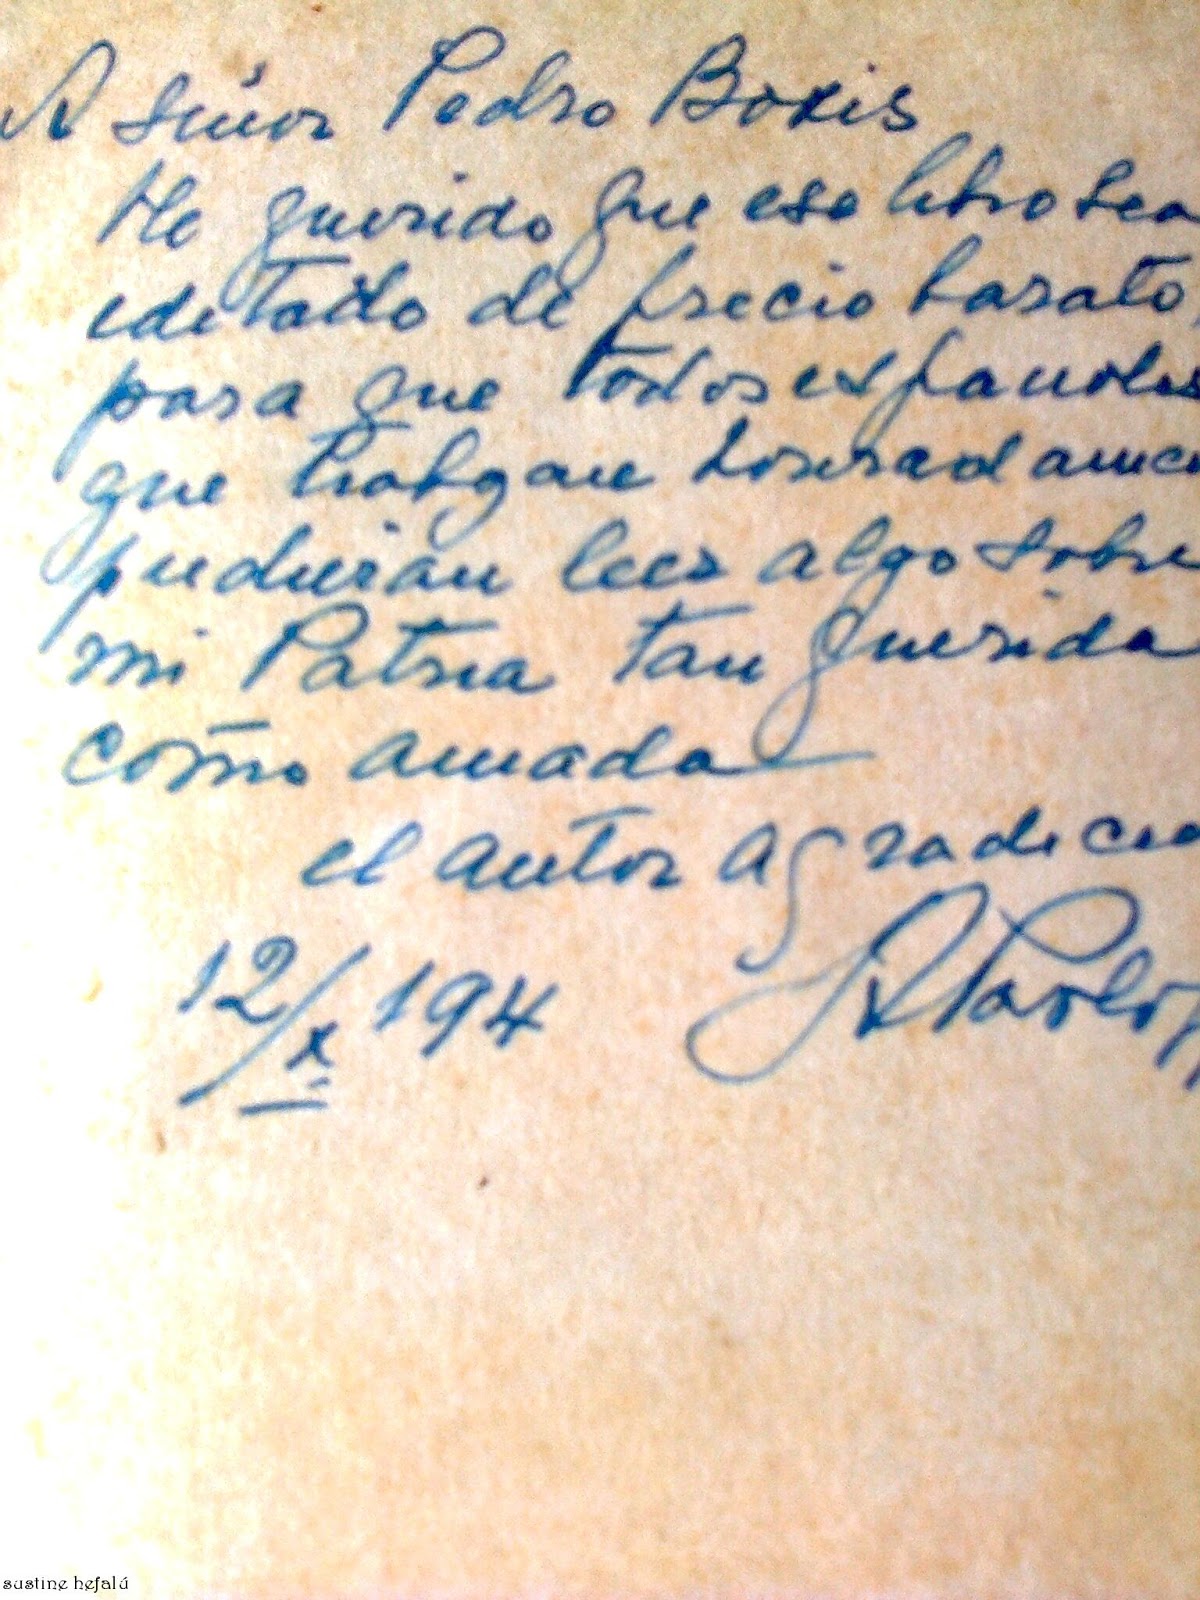 A señor Pedro Boxis
He querido que ese libro sea
editado de precio barato,
para que todos españoles
que trabajan honradamen
pudieran leer algo sobre
mi Patria tan querida
como amada
el autor agradecid
12/X 194
sustine hefalú